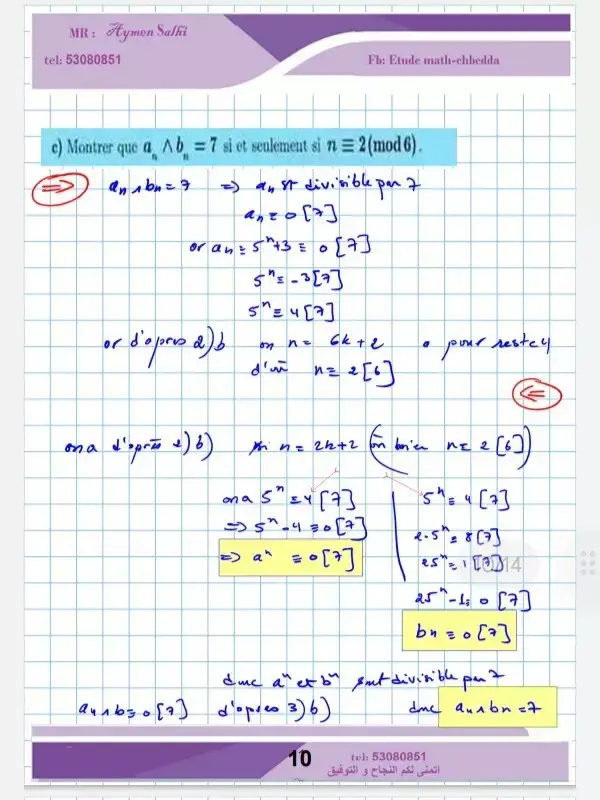 MR : Aymen Salhi
tel: 53080851
Fb: Etude math-chbedda
c) Montrer que aₙ ∧ bₙ = 7 si et seulement si n ≡ 2(mod 6).
⇒ aₙ ∧ bₙ = 7 ⇒ aₙ est divisible par 7
aₙ ≡ 0 [7]
or aₙ = 5ⁿ+3 ≡ 0 [7]
5ⁿ ≡ -3 [7]
5ⁿ ≡ 4 [7]
or d'après 2)b on n = 6k+2 a pour reste 4
d'où n ≡ 2 [6]
⇐
on a d'après 2) b) si n = 2k+2 (ou bien n ≡ 2 [6])
on a 5ⁿ ≡ 4 [7]
⇒ 5ⁿ - 4 ≡ 0 [7]
⇒ aⁿ ≡ 0 [7]
5ⁿ ≡ 4 [7]
2·5ⁿ ≡ 8 [7]
25ⁿ ≡ 1 [7]
25ⁿ - 1 ≡ 0 [7]
bn ≡ 0 [7]
donc aⁿ et bⁿ sont divisible par 7
aₙ ∧ b ≡ 0 [7] d'après 3) b) donc aₙ ∧ bn = 7
10
tel: 53080851
اتمنى لكم النجاح و التوفيق